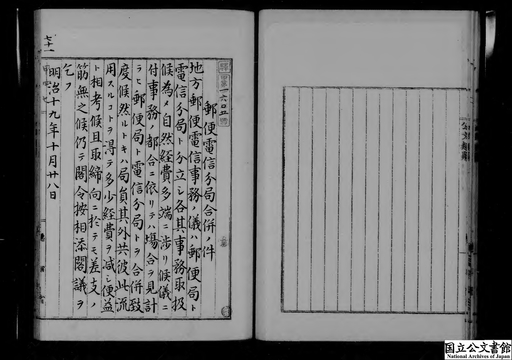 郵便電信分局合併ノ件
地方郵便電信事務ノ儀ハ郵便局ト
電信分局ト分立シ各其事務取扱
候為メ自然経費多端ニ渉リ候儀ニ
付事務ノ都合ニ依リテハ場合ヲ見計
ラヒ郵便局ト電信分局トヲ合併致
度候然ルトキハ局員其外共彼此流
用スルコトヲ得テ多少経費ヲ減シ便益
ト相考候且取締向ニ於テモ差支ノ
筋無之候仍テ閣令按相添閣議ヲ
乞フ
明治十九年十月廿八日
国立公文書館
National Archives of Japan